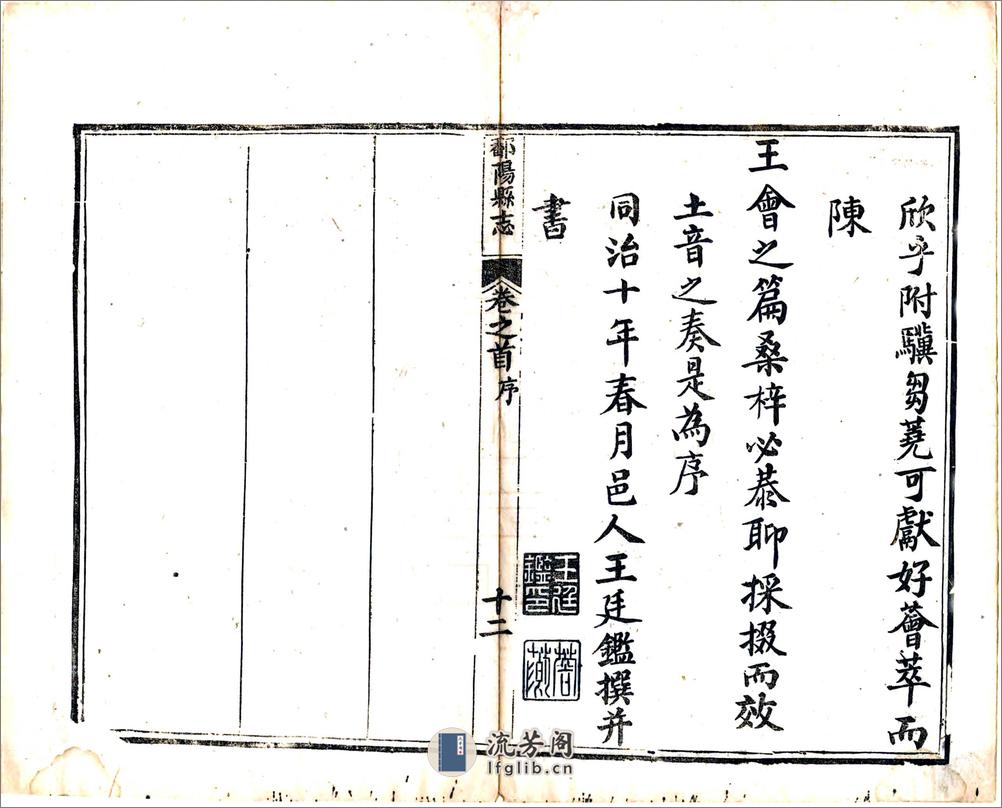 欣乎附驥芻蕘可獻好薈萃而
陳
王會之篇桑梓必恭聊採掇而效
土音之奏是為序
同治十年春月邑人王廷鑑撰并
書
王廷鑑印
鄱陽縣志
卷之首
序
十二
流芳阁
lfglib.cn